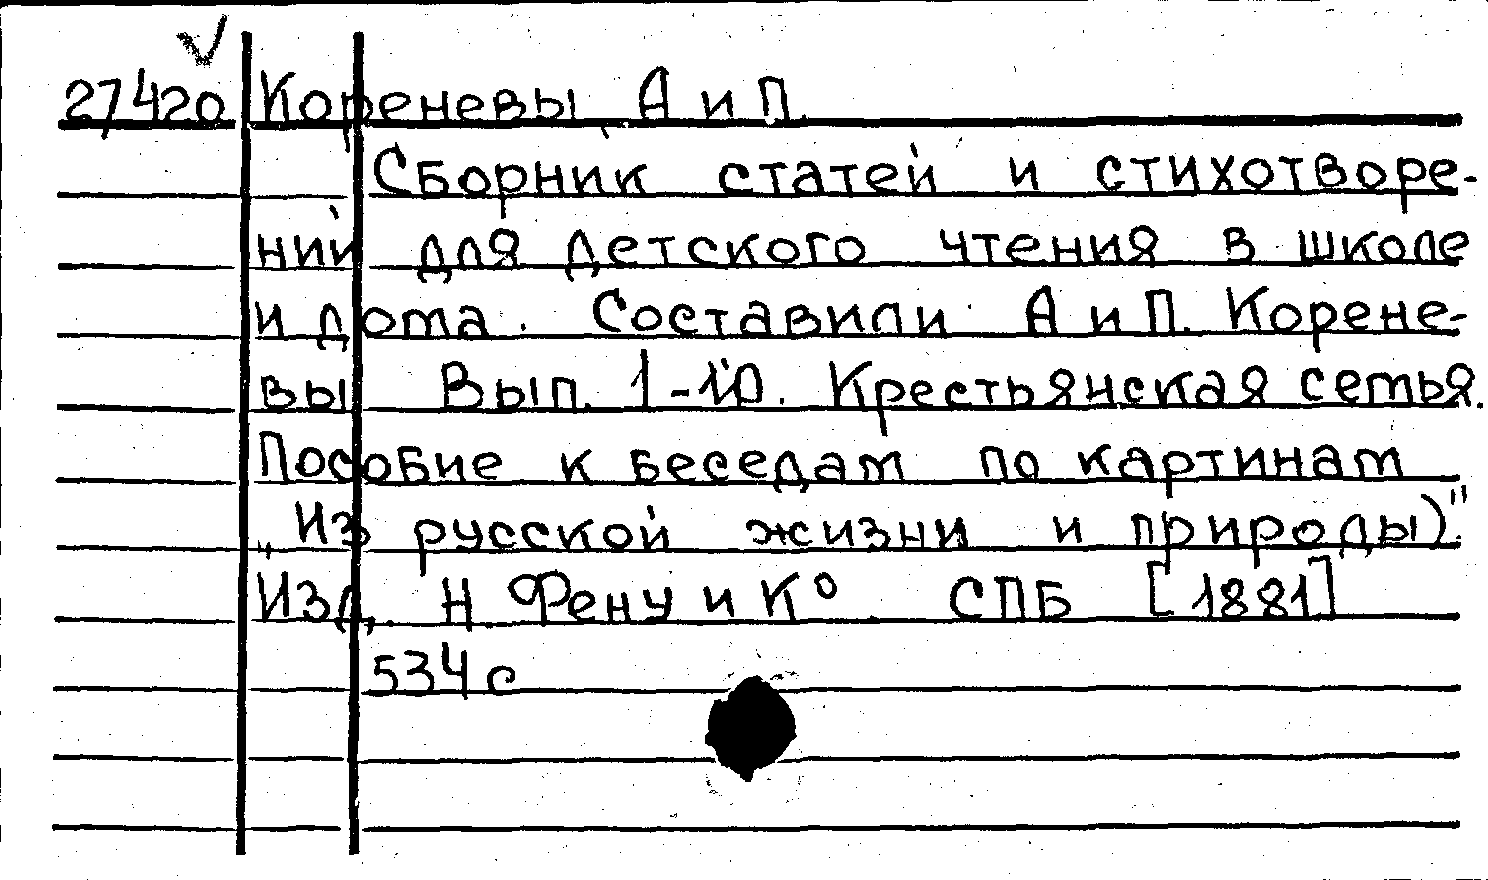 27420 Кореневы А и П.
Сборник статей и стихотворе-
ний для детского чтения в школе
и дома. Составили А и П. Корене-
вы Вып. 1-10. Крестьянская семья.
Пособие к беседам по картинам
„Из русской жизни и природы)."
Изд. Н. Фену и К° СПБ [1881]
534 с